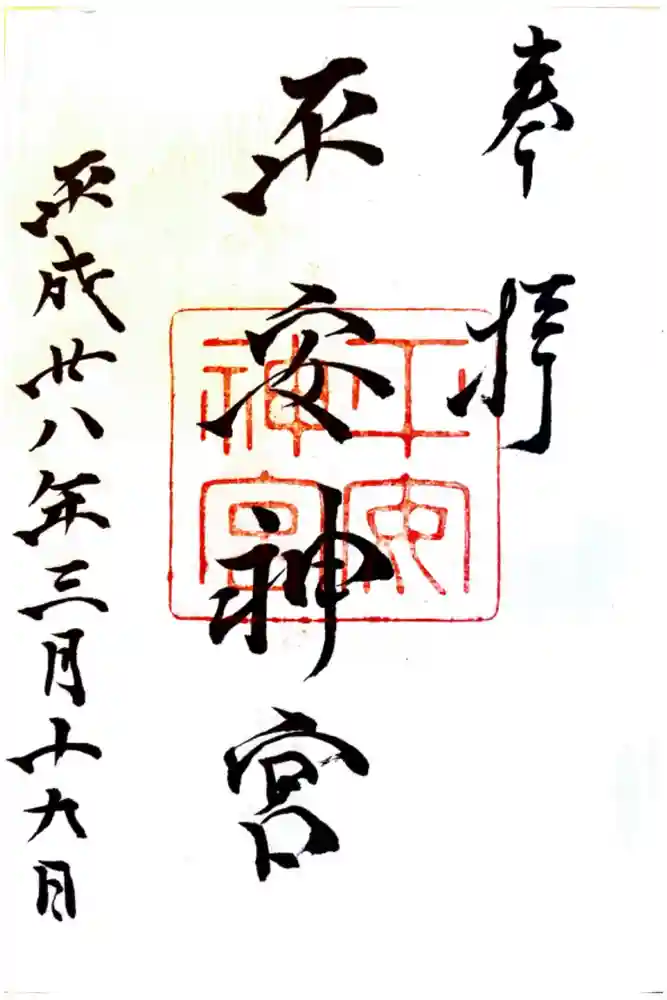 奉拝
平安神宮
平安神宮
平成廿八年三月十九日